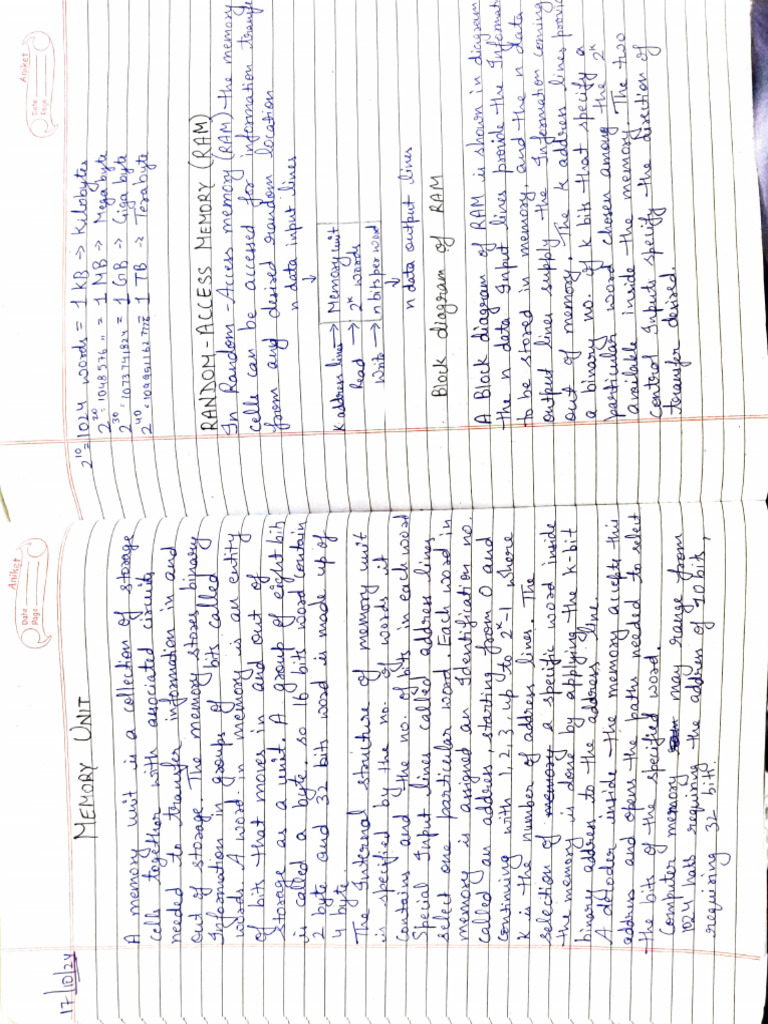 17/10/24
Aniket
Date
Page
MEMORY UNIT
A memory unit is a collection of storage
cells together with asociated circuits
needed to transfer information in and
out of storage. The memory stores binary
Information in groups of bits called
words. A word in memory is an entity
of bits that moves in and out of
Storage as a unit. A group of eight bits
is called a byte, so 16 bits word contain
2 byte and 32 bits word is made up of
4 byte.
The Internal structure of memory unit
is specified by the no. of words it
contains and the no. of bits in each word
Special Input lines called address lines
select one particular word. Each word in
memory is assigned an Identification no.
called an address, starting from 0 and
continuing with 1, 2, 3, up to 2ᵏ-1 where
K is the number of address lines. The
selection of memory a specific word inside
the memory is done by applying the k-bit
binary address to the address line.
A decoder inside the memory accepts this
address and opens the paths needed to select
the bits of the specified word.
Computer memory may range from
1024 requiring the address of 10 bits,
requiring 32 bits.
Aniket
Date
Page
2¹⁰ = 1024 words = 1 KB → Kilobytes
2²⁰ = 1048576 " = 1 MB → Mega byte
2³⁰ = 1073741824 = 1 GB → Giga byte
2⁴⁰ = = 1 TB → Terabyte
RANDOM-ACCESS MEMORY (RAM)
In Random-Access memory (RAM) the memory
cells can be accessed for information
from and desired random location
n data input lines
↓
K address lines → Memory unit
Read → 2ᵏ words
Write → n bits per word
↓
n data output lines
Block diagram of RAM
A Block diagram of RAM is shown in diagram
the n data Input lines provide the
to be stored in memory, and the n data
output lines supply the Information coming
out of memory. The k address lines
a binary no. of k bits that specify a
particular word chosen among the 2ᵏ
available inside the memory. The two
control Inputs specify the direction of
transfer desired.